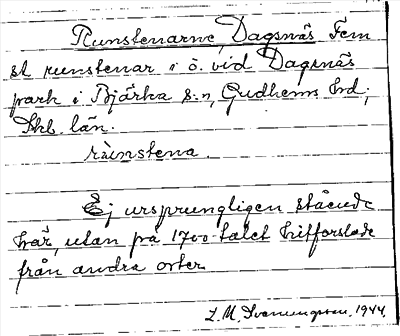 Runstenarne, Dagsnäs Fem
st runstenar i ö. vid Dagsnäs
park i Bjärka s:n, Gudhems hd,
Skbl. län.
rúnstena.
Ej ursprungligen stående
här, utan på 1700-talet hitforslade
från andra orter
L. M. Svenungsson, 1944.